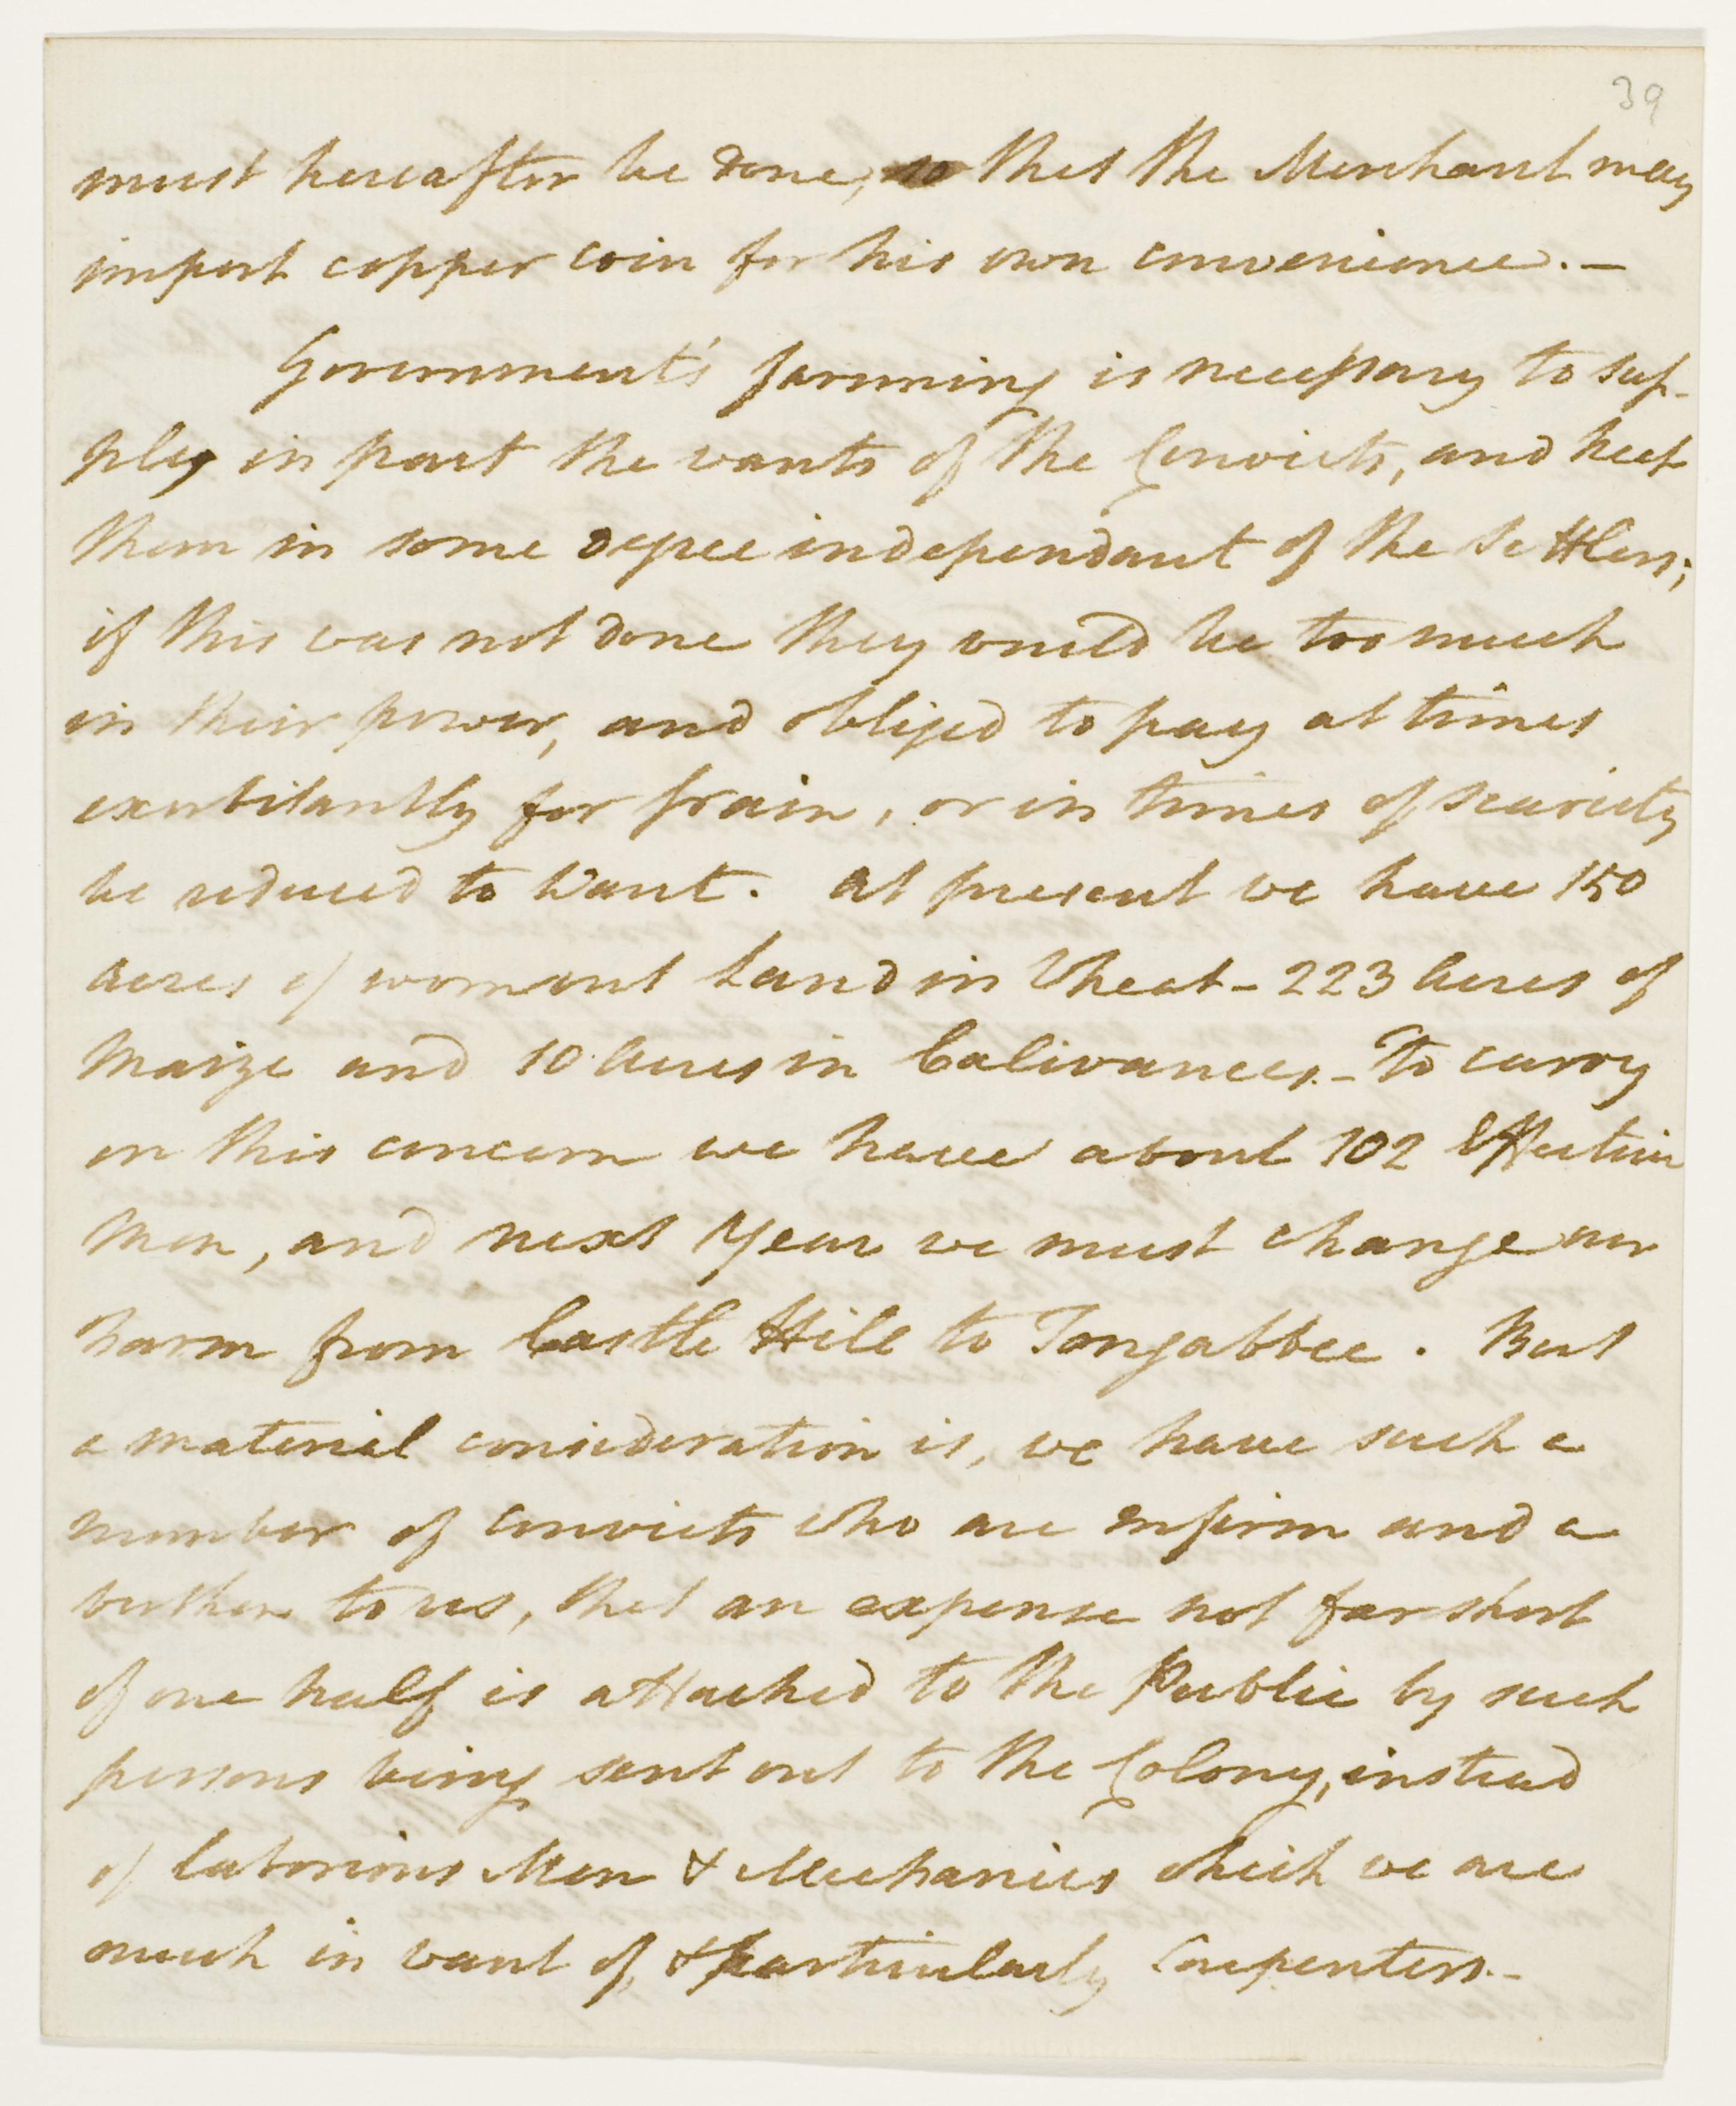 39
must hereafter be done, so that the Merchant may
import copper coin for his own convenience. —
Government's farming is necessary to sup-
ply in part the wants of the Convicts, and keep
them in some degree independant of the Settlers;
if this was not done they would be too much
in their power, and obliged to pay at times
exorbitantly for grain, or in times of scarcity
be reduced to Want. At present we have 150
acres of wornout Land in Wheat - 223 Acres of
Maize and 10 Acres in Calivances. - To carry
on this concern we have about 102 Effective
Men, and next Year we must change our
Farm from Castle Hill to Tongabbee. But
a material consideration is, we have such a
number of convicts who are infirm and a
burthen to us, that an expense not far short
of one half is attached to the Public by such
persons being sent out to the Colony, instead
of laborious Men & Mechanics which we are
much in want of, & particularly Carpenters. -